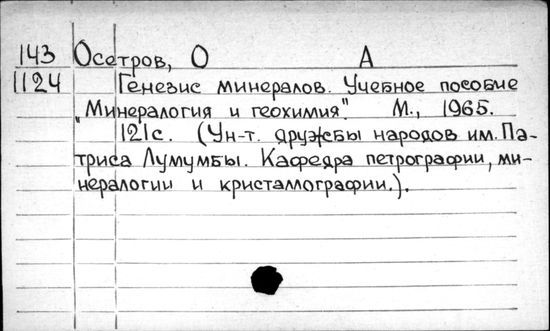 143 Осетров, О А
1124 Генезис минералов. Учебное пособие
"Минералогия и геохимия". М., 1965.
121с. (Ун-т. дружбы народов им. Па-
триса Лумумбы. Кафедра петрографии, ми-
нералогии и кристаллографии.).